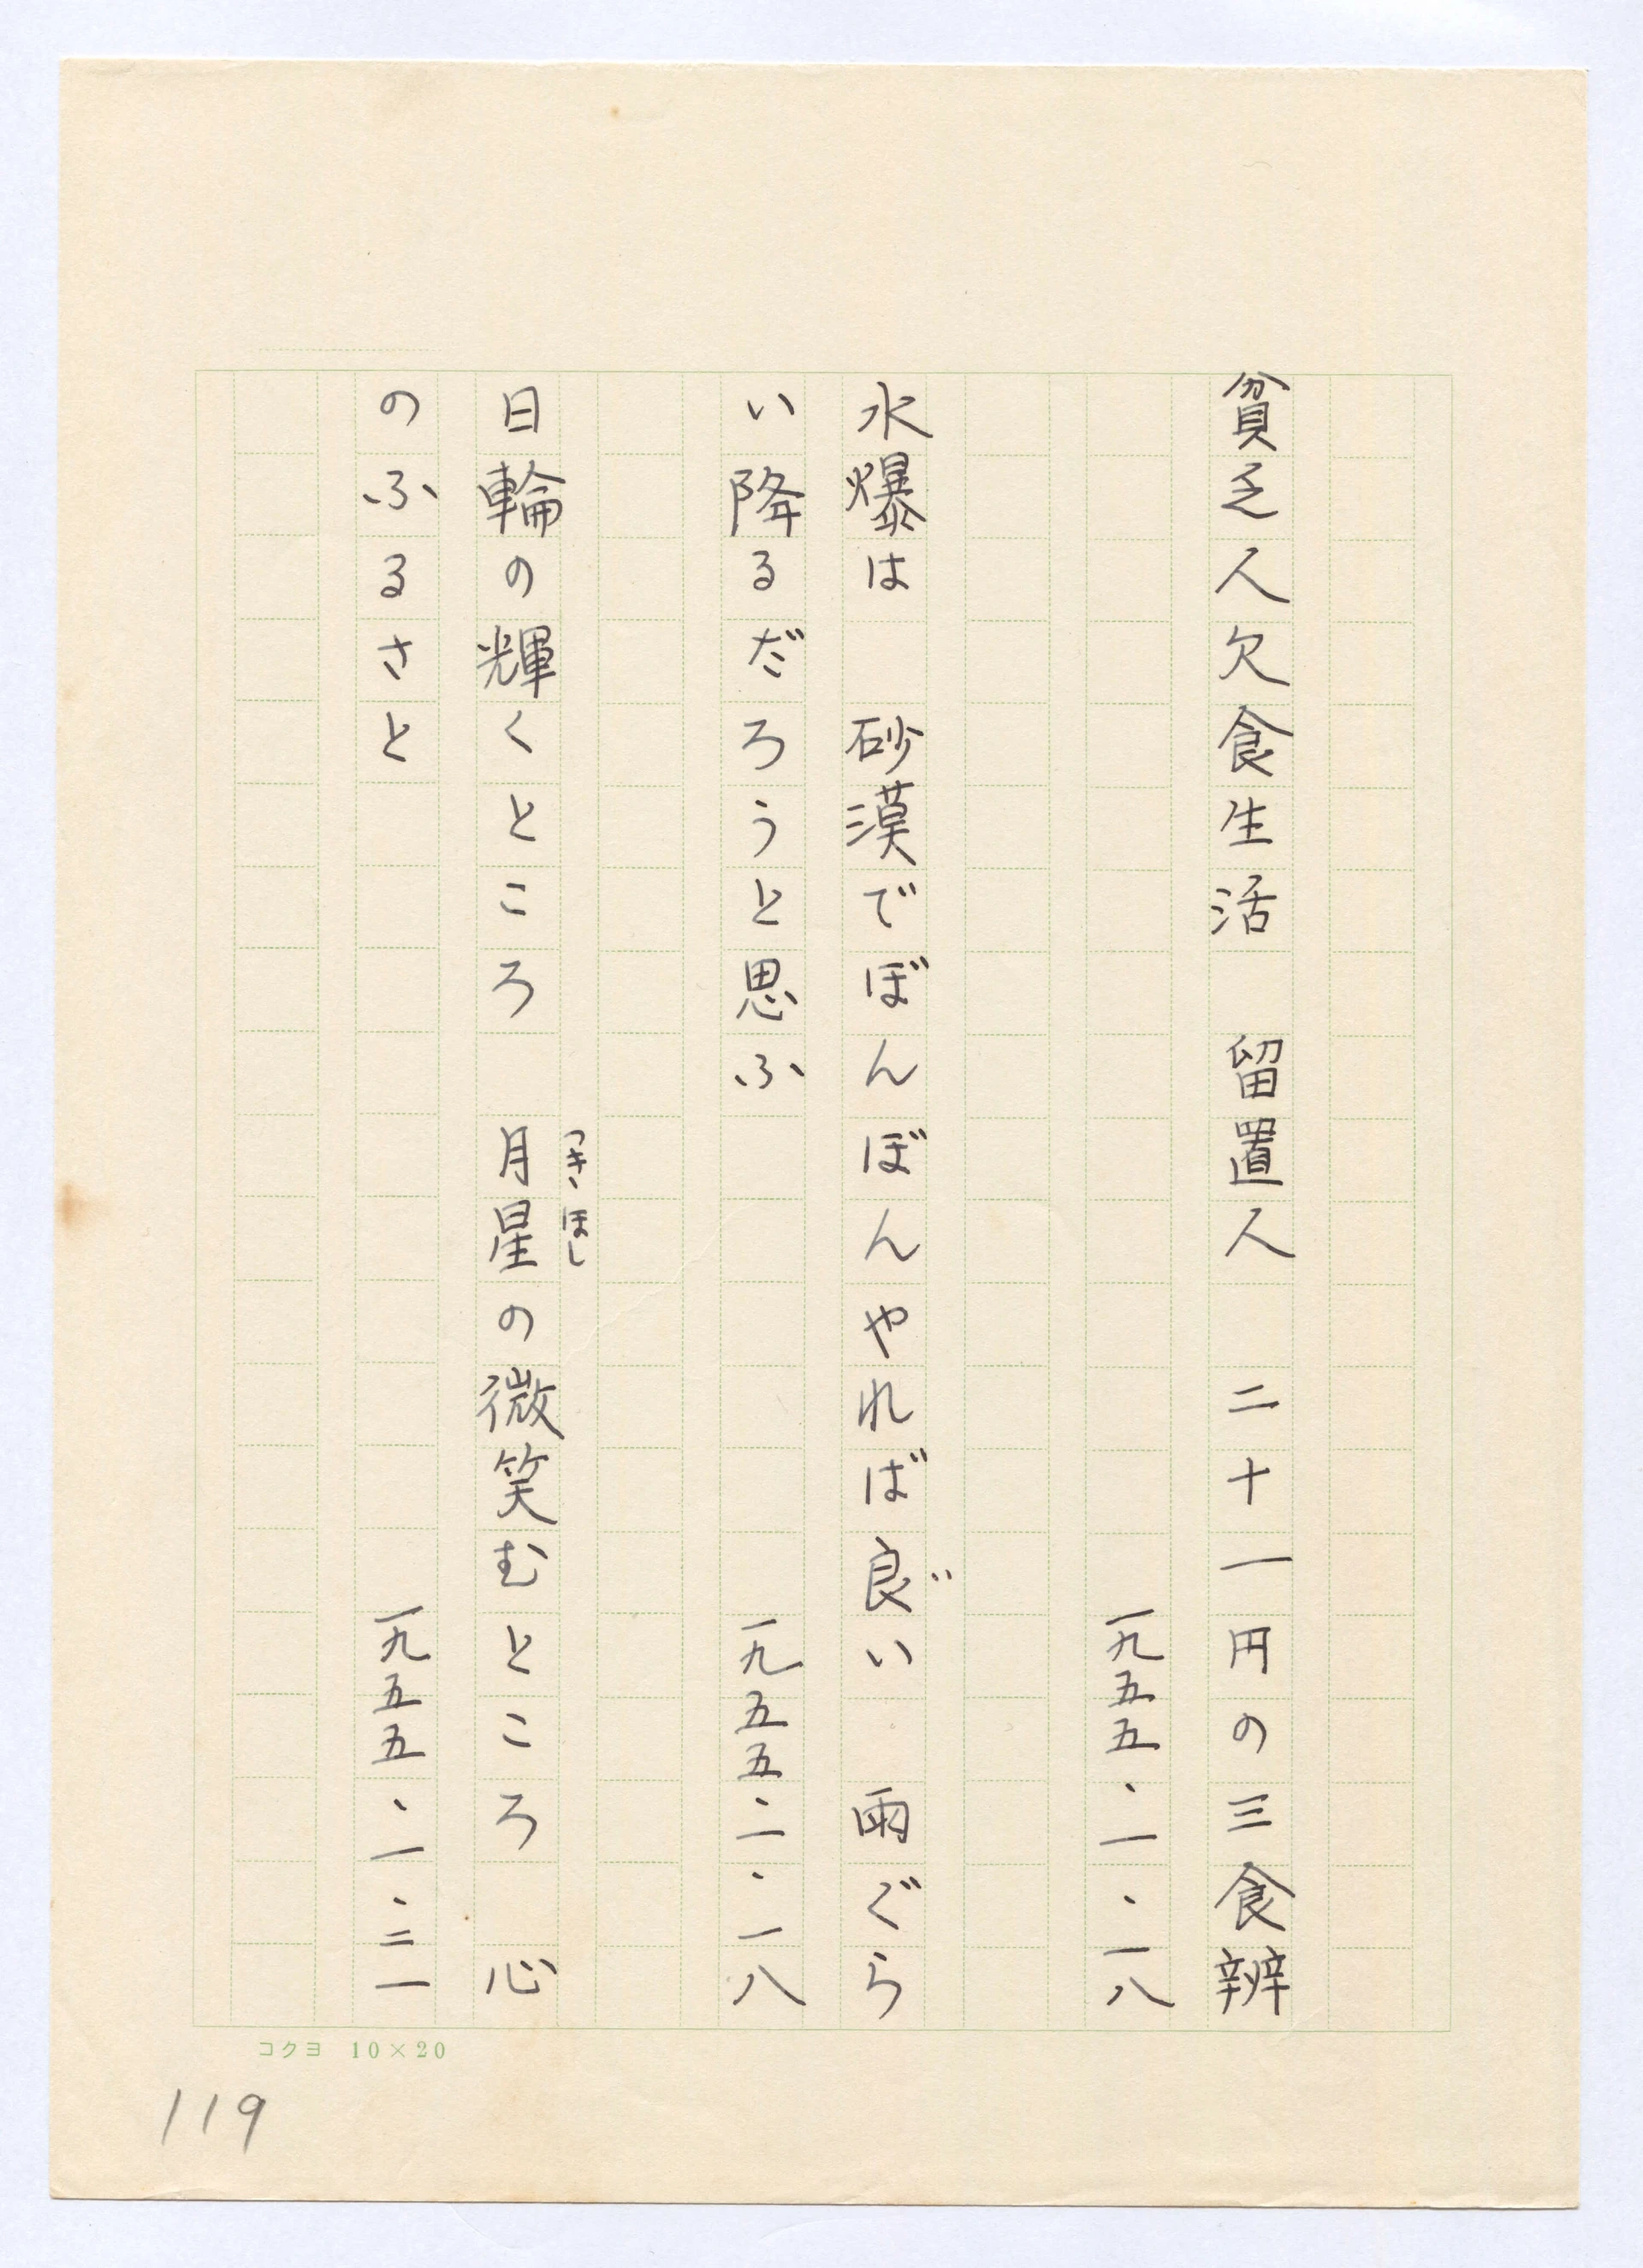 貧乏人欠食生活　留置人　二十一円の三食辨
一九五五・一・一八
水爆は　砂漠でぼんぼんやれば良い゛　雨ぐら
い降るだろうと思ふ
一九五五・一・一八
日輪の輝くところ　月星の微笑むところ　心
つきほし
のふるさと
一九五五・一・二一
コクヨ 10×20
119